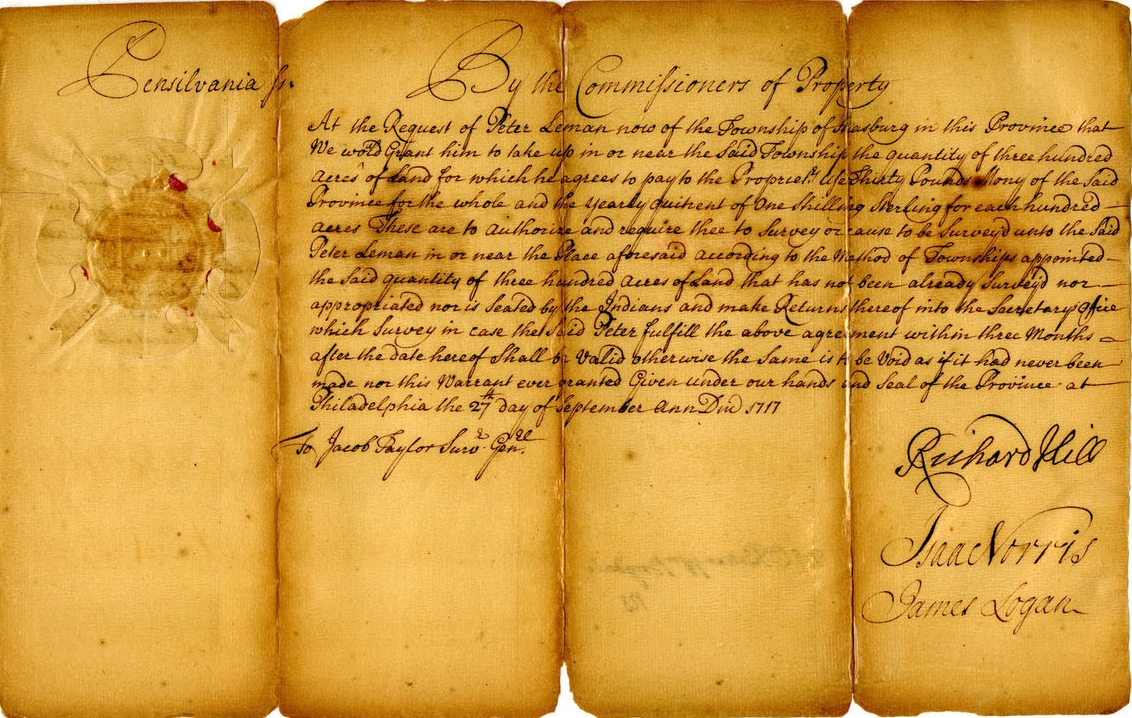 Pensilvania ss. By the Commissioners of Property
At the Request of Peter Leman now of the Township of Strasburg in this Province that
We wo'd Grant him to take up in or near the Said Township the quantity of three hundred
acres of Land for which he agrees to pay to the Propriet.rs use Thirty Pounds Mony of the Said
Province for the whole and the yearly quitrent of One Shilling Sterling for each hundred
acres These are to authorize and require thee to Survey or cause to be Survey'd unto the Said
Peter Leman in or near the Place aforesaid according to the Method of Townships appointed
the Said quantity of three hundred acres of Land that has not been already Survey'd nor
appropriated nor is Seated by the Indians and make Returns thereof into the Secretarys Office
which Survey in case the Said Peter fulfill the above agreement within three Months
after the date hereof Shall be Valid otherwise the Same is to be Void as if it had never been
made nor this Warrant ever granted Given under our hands and Seal of the Province at
Philadelphia the 27th day of September Ann Dñi 1717
To Jacob Taylor Surv.r Gen.ll
Richard Hill
Isaac Norris
James Logan